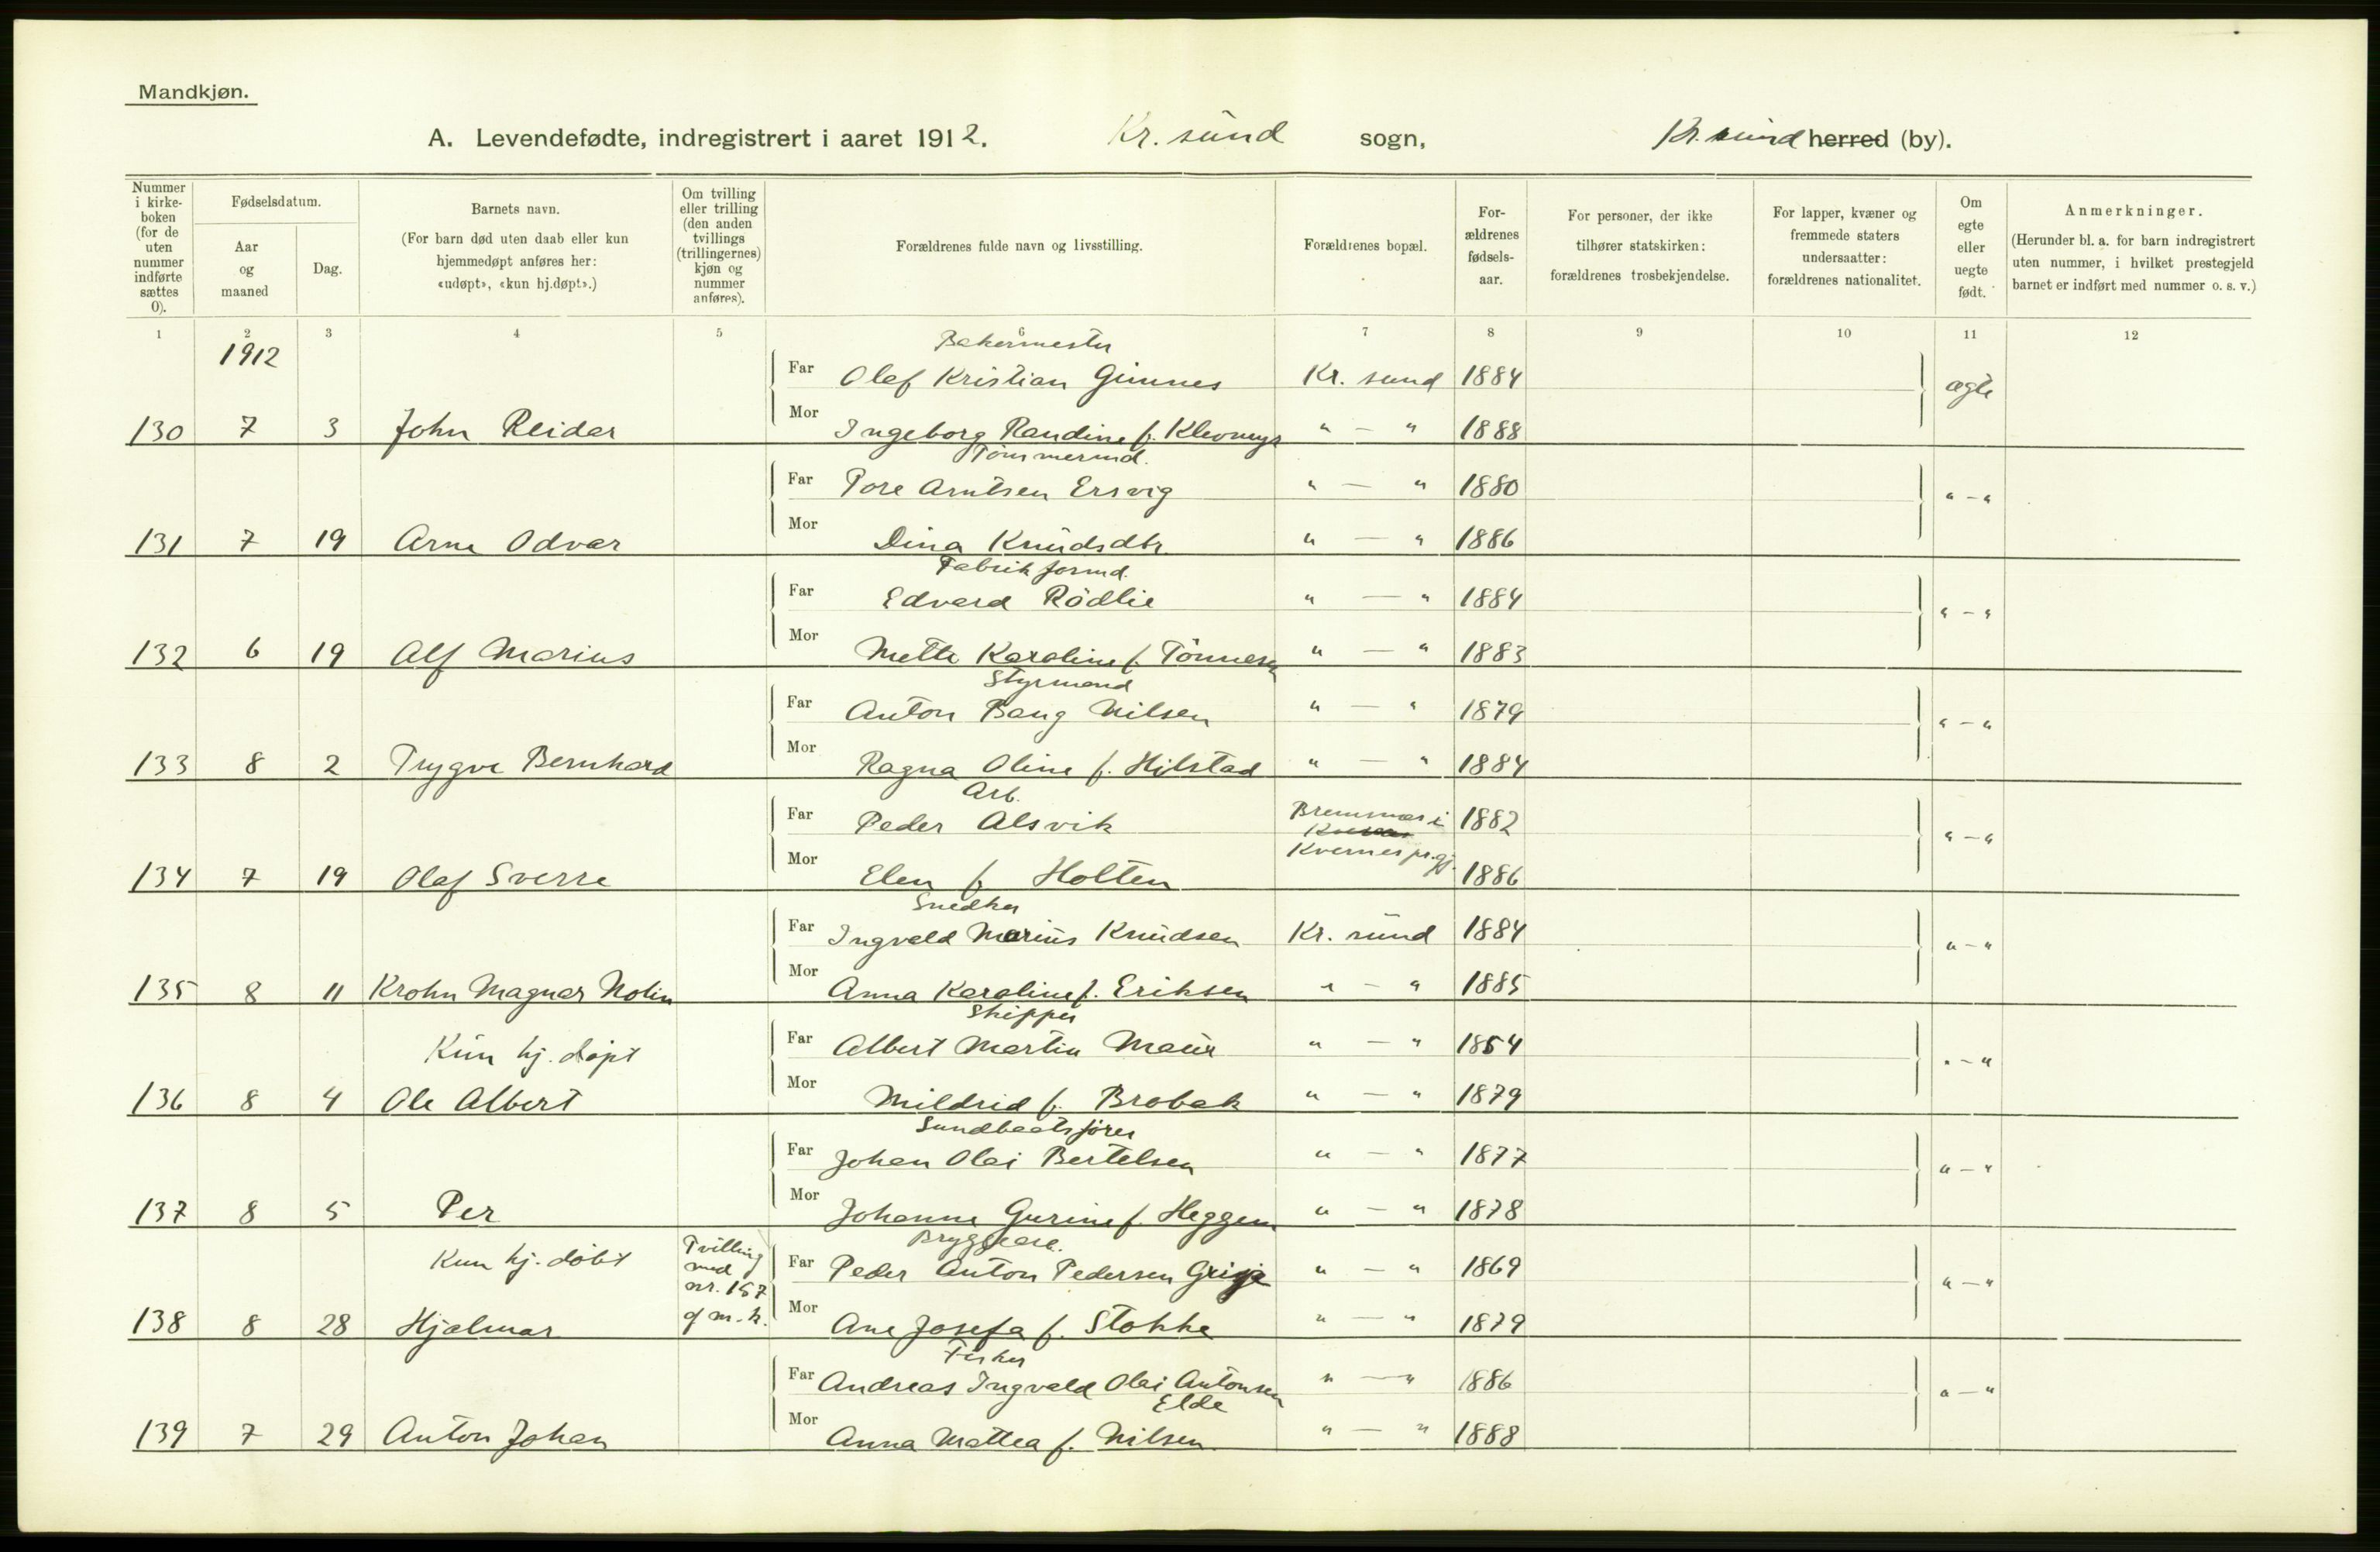 Mandkjøn.
A. Levendefødte, indregistrert i aaret 1912. Kr. sund sogn, Kr. sund herred (by).
Nummer i kirke-boken (for de uten nummer indførte sættes 0).
Fødselsdatum.
Aar og maaned
Dag.
Barnets navn.
(For barn død uten daab eller kun hjemmedøpt anføres her: «udøpt», «kun hj.døpt».)
Om tvilling eller trilling (den anden tvillings (trillingernes) kjøn og nummer anføres).
Forældrenes fulde navn og livsstilling.
Forældrenes bopæl.
For-ældrenes fødsels-aar.
For personer, der ikke tilhører statskirken: forældrenes trosbekjendelse.
For lapper, kvæner og fremmede staters undersaatter: forældrenes nationalitet.
Om egte eller uegte født.
Anmerkninger.
(Herunder bl. a. for barn indregistrert uten nummer, i hvilket prestegjeld barnet er indført med nummer o. s. v.)
1 2 3 4 5 6 7 8 9 10 11 12
1912
Bakermester
Far Olaf Kristian Gimnes Kr. sund 1884 ægte
130 7 3 John Reidar Mor Ingeborg Randine f. " — " 1888
Tømmermd.
Far Tore Arntsen Ersvig " — " 1880 " — "
131 7 19 Arne Odvar Mor Dina Knudsdtr. " — " 1886
Fabrikformd.
Far Edvard Rödlie " — " 1884 " — "
132 6 19 Alf Marius Mor Mette Karoline f. Tönnesen " — " 1883
Styrmand
Far Anton Bang Nilsen " — " 1879 " — "
133 8 2 Trygve Bernhard Mor Ragna Oline f. Hilstad " — " 1884
Arb.
Far Peder Alsvik Bremsnes i 1882 " — "
Kvernes pr.gj.
134 7 19 Olaf Sverre Mor Elen f. Holten 1886
Snedker
Far Ingvald Marius Knudsen Kr. sund 1884 " — "
135 8 11 Krohn Magnar Nolin Mor Anna Karoline f. Eriksen " — " 1885
Skipper
Kun hj. døpt Far Albert Martin Maur " — " 1854 " — "
136 8 4 Ole Albert Mor Mildrid f. Brobak " — " 1879
Sundbaatsfører
Far Johan Olai Bertelsen " — " 1877 " — "
137 8 5 Per Mor Johanne Gurine f. Heggem " — " 1878
Bryggearb.
Kun hj. döbt Tvilling med nr. 157 af m.k. Far Peder Anton Pedersen " — " 1869 " — "
138 8 28 Hjalmar Mor Ane Josefa f. Stokke " — " 1879
Fisker
Far Andreas Ingvald Olai Antonsen " — " 1886 " — "
Elde
139 7 29 Anton Johan Mor Anna Mattea f. Nilsen " — " 1888